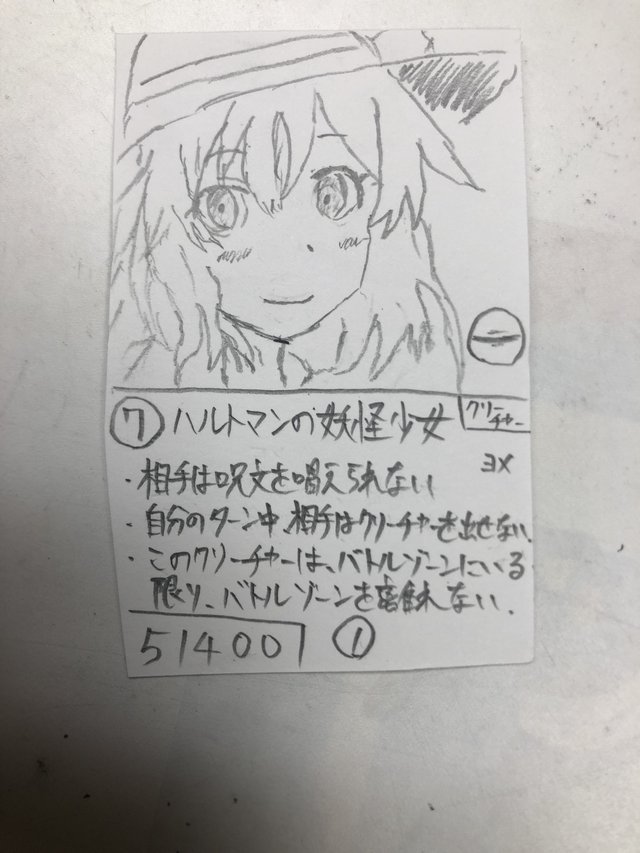 一
クリー
チャー
7 ハルトマンの妖怪少女
ヨメ
・相手は呪文を唱えられない
・自分のターン中、相手はクリーチャーを出せない、
・このクリーチャーは、バトルゾーンにいる
限り、バトルゾーンを離れない、
514001 1